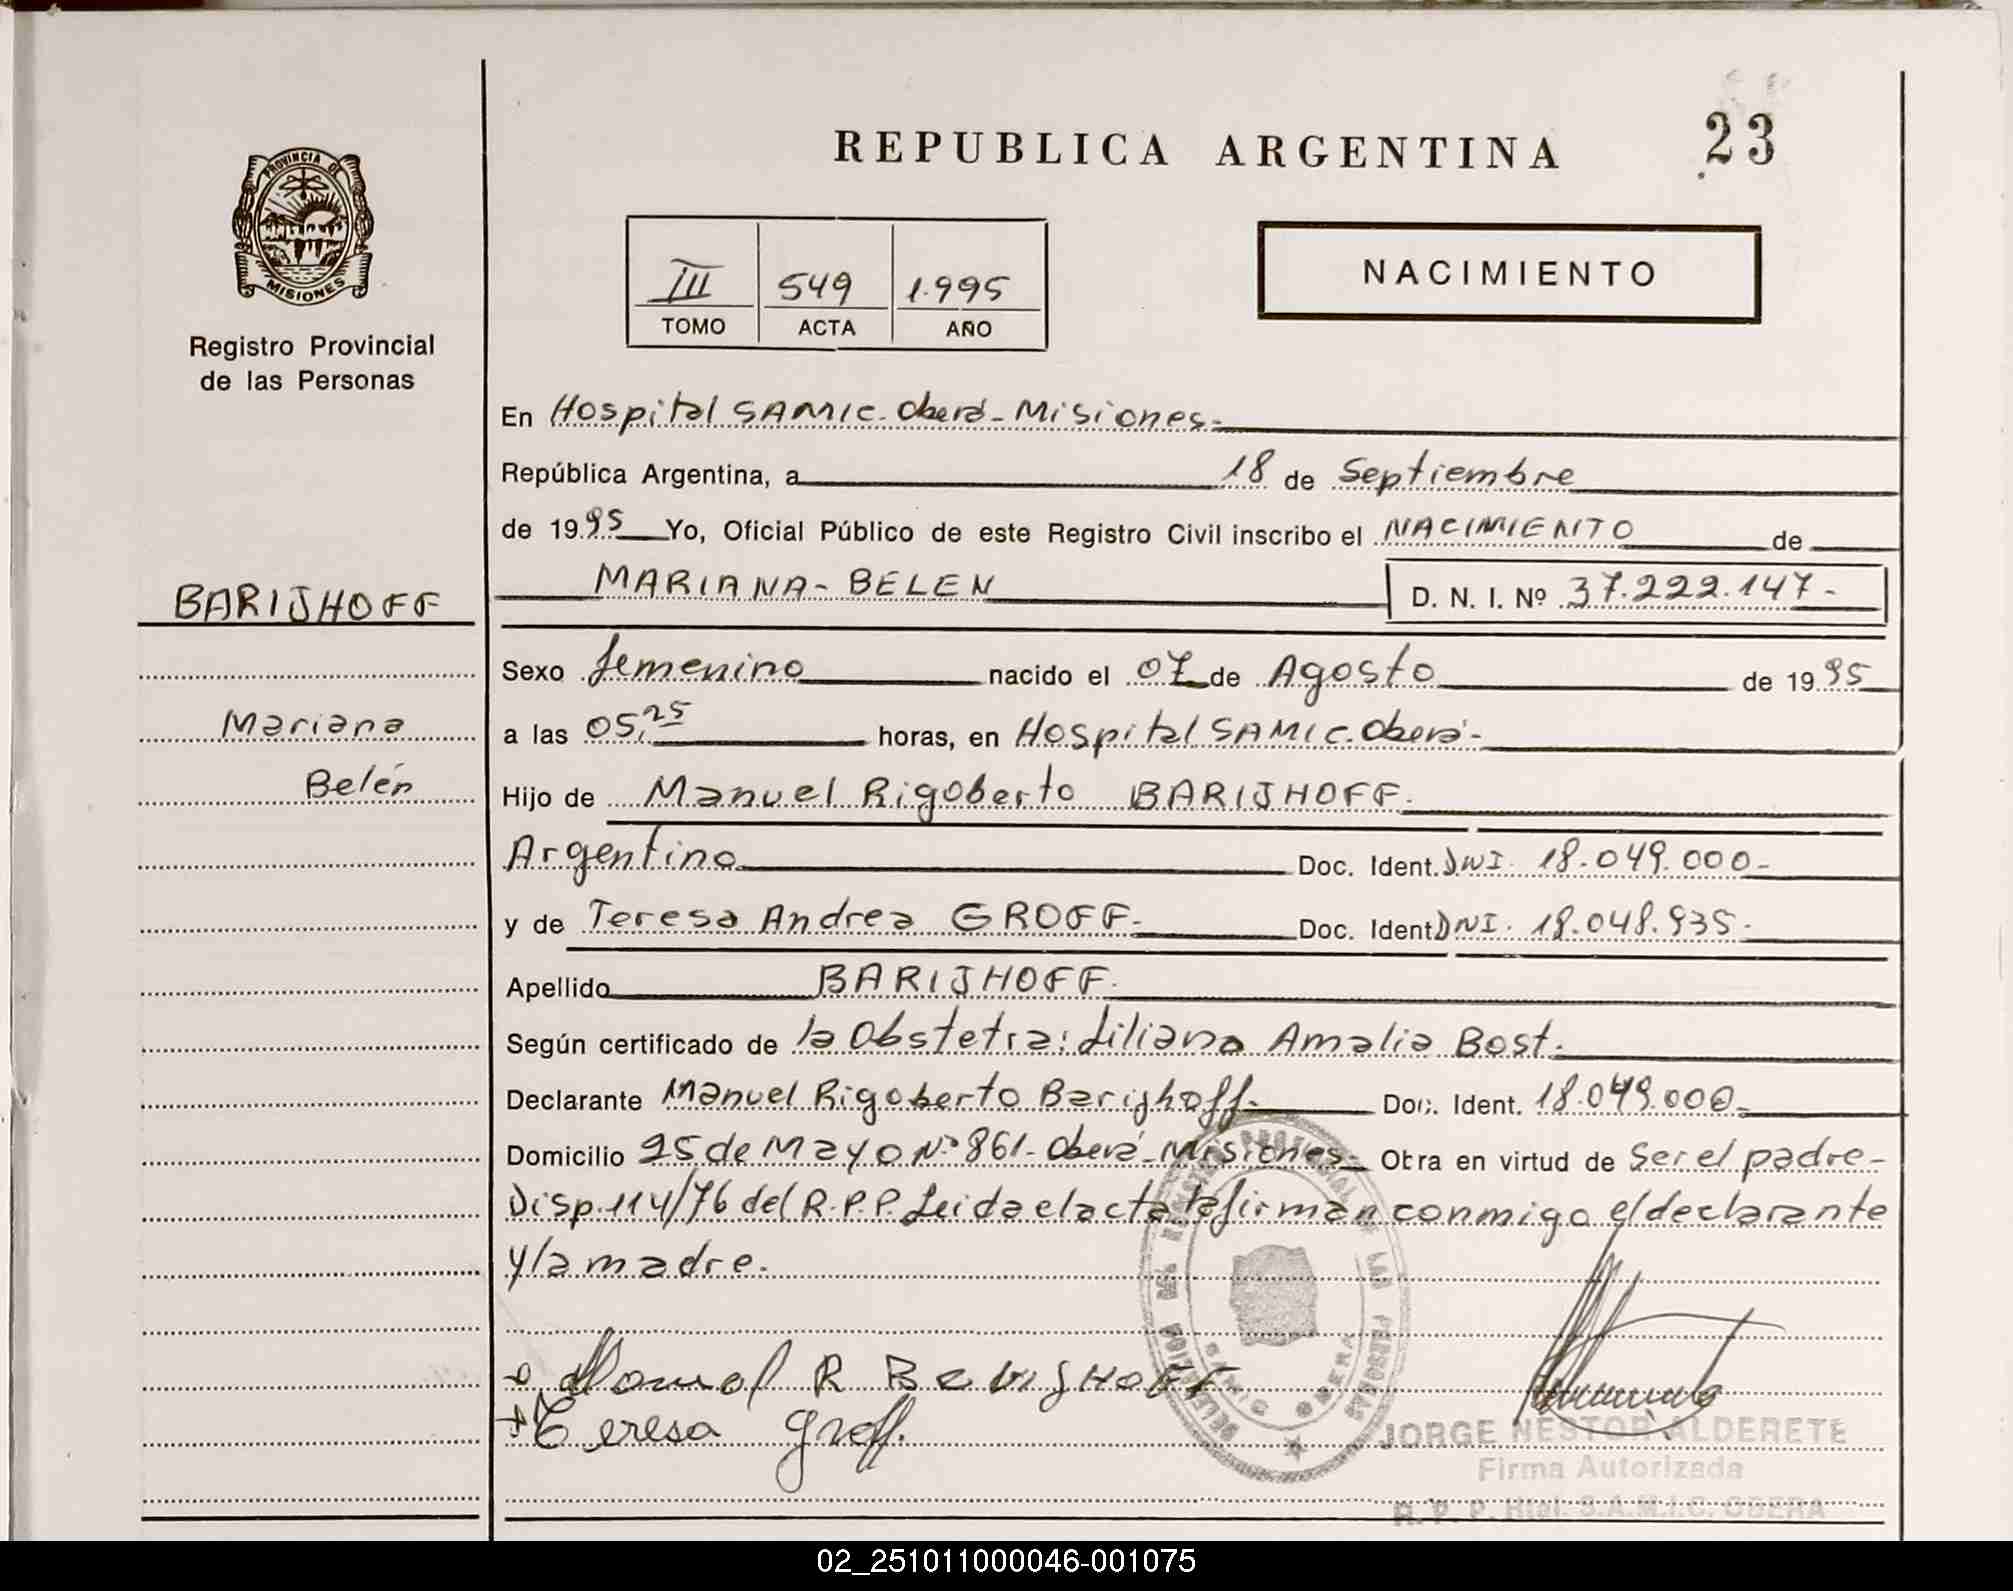 REPUBLICA ARGENTINA
23
PROVINCIA DE
MISIONES
Registro Provincial
de las Personas
III 549 1.995
TOMO ACTA AÑO
NACIMIENTO
En Hospital SAMIC. Oberá - Misiones.-
República Argentina, a 18 de Septiembre
de 1995 Yo, Oficial Público de este Registro Civil inscribo el NACIMIENTO de
BARIJHOFF
MARIANA - BELEN D. N. I. Nº 37.222.147-
Sexo femenino nacido el 07 de Agosto de 1995
Mariana
a las 05,25 horas, en Hospital SAMIC. Oberá-
Belén
Hijo de Manuel Rigoberto BARIJHOFF.
Argentino Doc. Ident. DNI. 18.049.000-
y de Teresa Andrea GROFF- Doc. Ident DNI. 18.048.935-
Apellido BARIJHOFF.
Según certificado de la Obstetra: Liliana Amalia Bost.
Declarante Manuel Rigoberto Barijhoff. Doc. Ident. 18.049.000-
Domicilio 25 de Mayo Nº 861- Oberá - Misiones- Obra en virtud de Ser el padre-
Disp. 114/76 del R.P.P. Leida el acta la firman conmigo el declarante
y la madre.
Manuel R BARIJHOFF
Teresa Groff.
DELEGACION DEL REGISTRO PROVINCIAL DE LAS PERSONAS
SAMIC OBERA
JORGE NESTOR ALDERETE
Firma Autorizada
R. P. P. Htal. S.A.M.I.C. OBERA
02_251011000046-001075